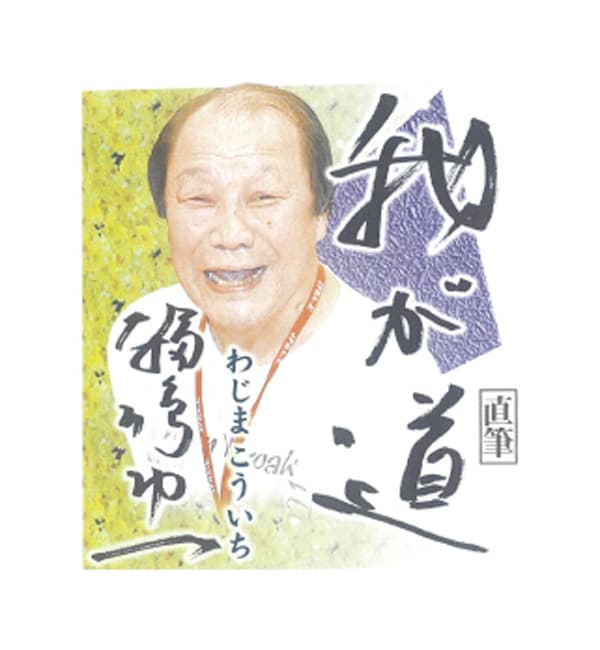 我が道
直筆
輪島功一
わじまこういち
oak